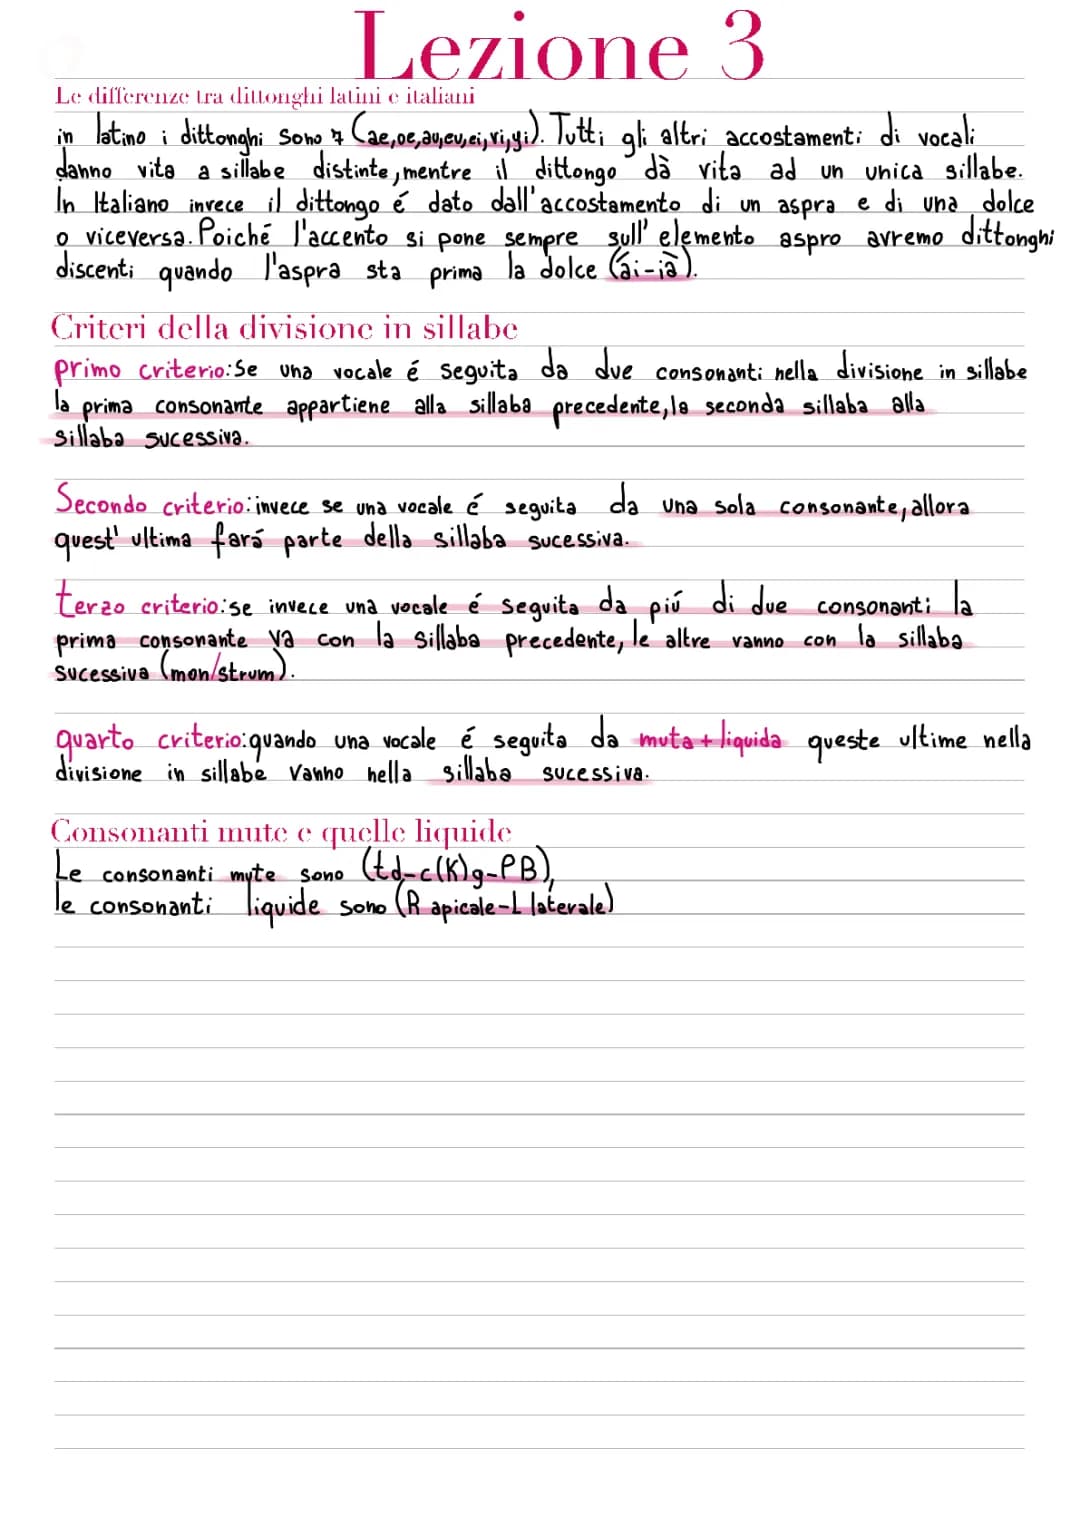 Lezione 3
Le differenze tra dittonghi latini e italiani
in latino i dittonghi sono 7 (ae,oe,au,eu,ei,vi,yi). Tutti gli altri accostamenti di vocali
danno vita a sillabe distinte, mentre il dittongo dà vita ad un unica sillabe.
In Italiano invece il dittongo é dato dall'accostamento di un aspra e di una dolce
o viceversa. Poiché l'accento si pone sempre sull'elemento aspro avremo dittonghi
discenti quando l'aspra sta prima la dolce (ái-ià).
Criteri della divisione in sillabe
primo criterio: Se una vocale é seguita da due consonanti nella divisione in sillabe
la prima consonante appartiene alla sillaba precedente, la seconda sillaba alla
sillaba sucessiva.
Secondo criterio: invece se una vocale é seguita da una sola consonante, allora
quest'ultima fará parte della sillaba sucessiva.
terzo criterio: se invece una vocale é seguita da piú di due consonanti la
prima consonante va con la sillaba precedente, le altre vanno con la sillaba
sucessiva (mon/strum).
quarto criterio: quando una vocale é seguita da muta+liquida queste ultime nella
divisione in sillabe vanno nella sillaba sucessiva.
Consonanti mute e quelle liquide
Le consonanti mute sono (td-c(K)g-PB),
le consonanti liquide sono (R apicale-L laterale)